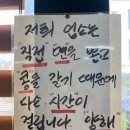 저희 업소는
직접 "면"을 뽑고
콩을 갈기 때문에
다소 "시간"이
걸립니다. 양해